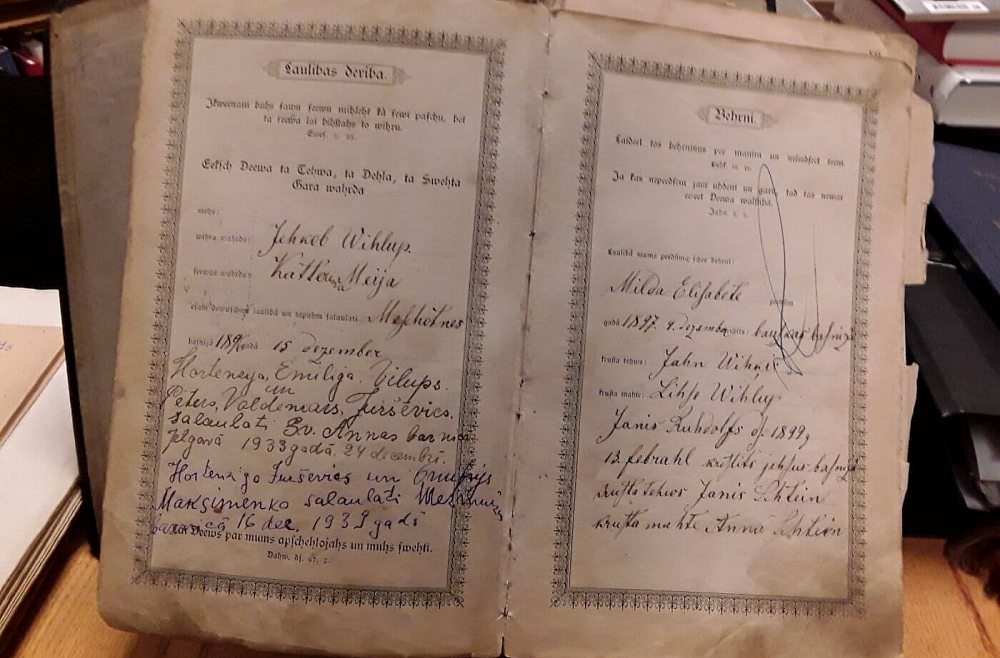 Laulibas deriba.
Ikweenam buhs sawu seewu mihleht kà sewi paschu, bet
ta seewa lai bihstahs to wihru.
Ewes. 5. 33.
Eeksch Deewa ta Tehwa, ta Dehla, ta Swehta
Gara wahrda
mehs:
wihra wahrds: Jehkob Wihlup.
seewas wahrds: Meija
esam deewischkà laulibâ un tapahm salaulati Meschotnes
basnizâ 189 gadâ 15 dezember
Horteneija, Emiliga, Vilups.
un
Peters, Valdemars, Jurševics.
salaulati Sv. Annas baznica
Jelgavā 1933 gadā. 24 decembri.
Hortenzija Jurševics un
Maksimenko salaulāti
bazncā 16 dec. 1939 gadā
Deews par mums apschehlojahs un muhs swehti.
Dahw. ds. 67. 2.
Behrni
Laideet tos behrninus pee manim un neleedseet teem.
Luk.
Ja kas nepeedsem zaur uhdeni un garu, tad tas newar
ee-eet Deewa walstibâ.
Jahn. 3. 5.
Laulibâ mums peedsimuschi schee behrni:
Milda Elisabete peedsim
gadâ 1897. 9. dezember
krusta tehws: Jahn
krusta mahte: Lihse Wihlup
Janis Ruhdolfs dz. 1899g
13. februahl kristits basnizâ
krusta tehws Janis Shtein
krusta mahte Anna Shtein